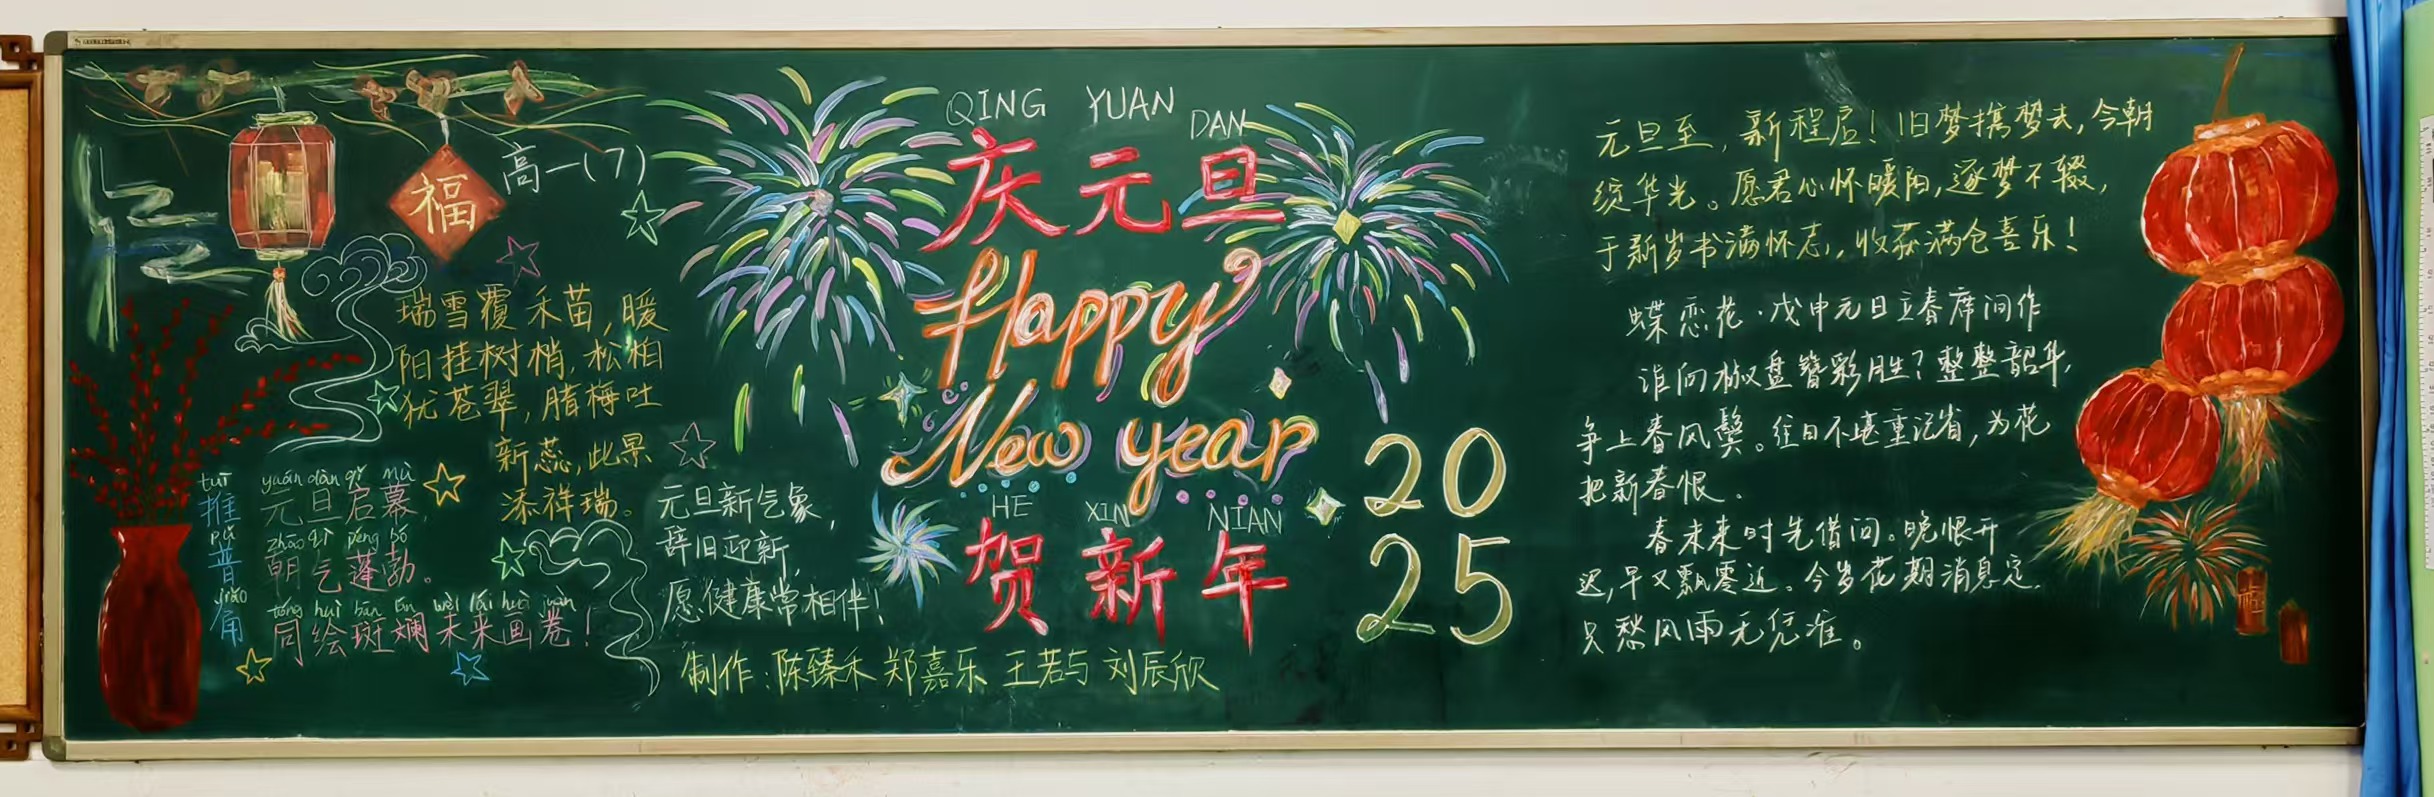 高一(7)
福
瑞雪覆禾苗,暖
阳挂树梢,松柏
犹苍翠,腊梅吐
新蕊,此景
添祥瑞。
tuī
推
pǔ
普
jiǎo
角
yuán dàn qǐ mù
元旦启幕,
zhāo qì péng bó
朝气蓬勃。
tóng huì bān lán wèi lái huà juàn
同绘斑斓未来画卷!
元旦新气象,
辞旧迎新,
愿健康常相伴!
QING YUAN DAN
庆元旦
Happy
New year
HE XIN NIAN
贺新年
20
25
制作:陈臻禾 郑嘉乐 王若与 刘辰欣
元旦至,新程启!旧梦携梦去,今朝
绽华光。愿君心怀暖阳,逐梦不辍,
于新岁书满怀志,收获满仓喜乐!
蝶恋花·戊申元日立春席间作
谁向椒盘簪彩胜?整整韶华,
争上春风鬓。往日不堪重记省,为花
把新春恨。
春未来时先借问。晚恨开
迟,早又飘零近。今岁花期消息定,
只愁风雨无凭准。